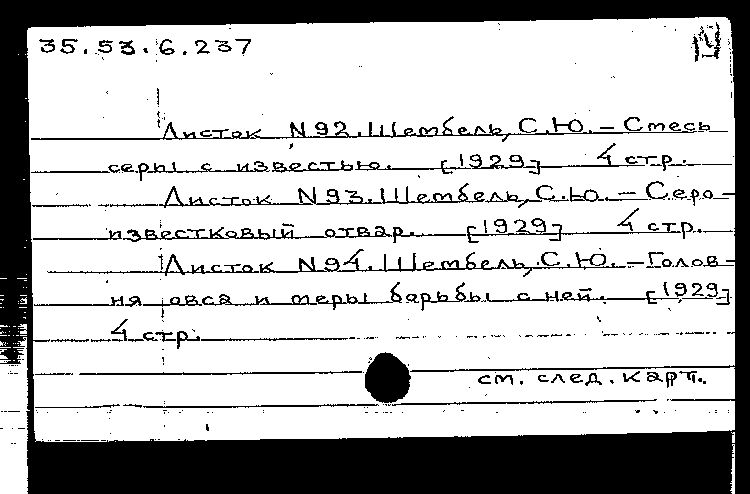 35.53.6.237
Листок N92. Шембель, С.Ю. – Смесь
серы с известью. [1929] 4 стр.
Листок N93. Шембель, С.Ю. – Серо-
известковый отвар. [1929] 4 стр.
Листок N94. Шембель, С.Ю. – Голов-
ня овса и меры борьбы с ней. [1929]
4 стр.
см. след. карт.